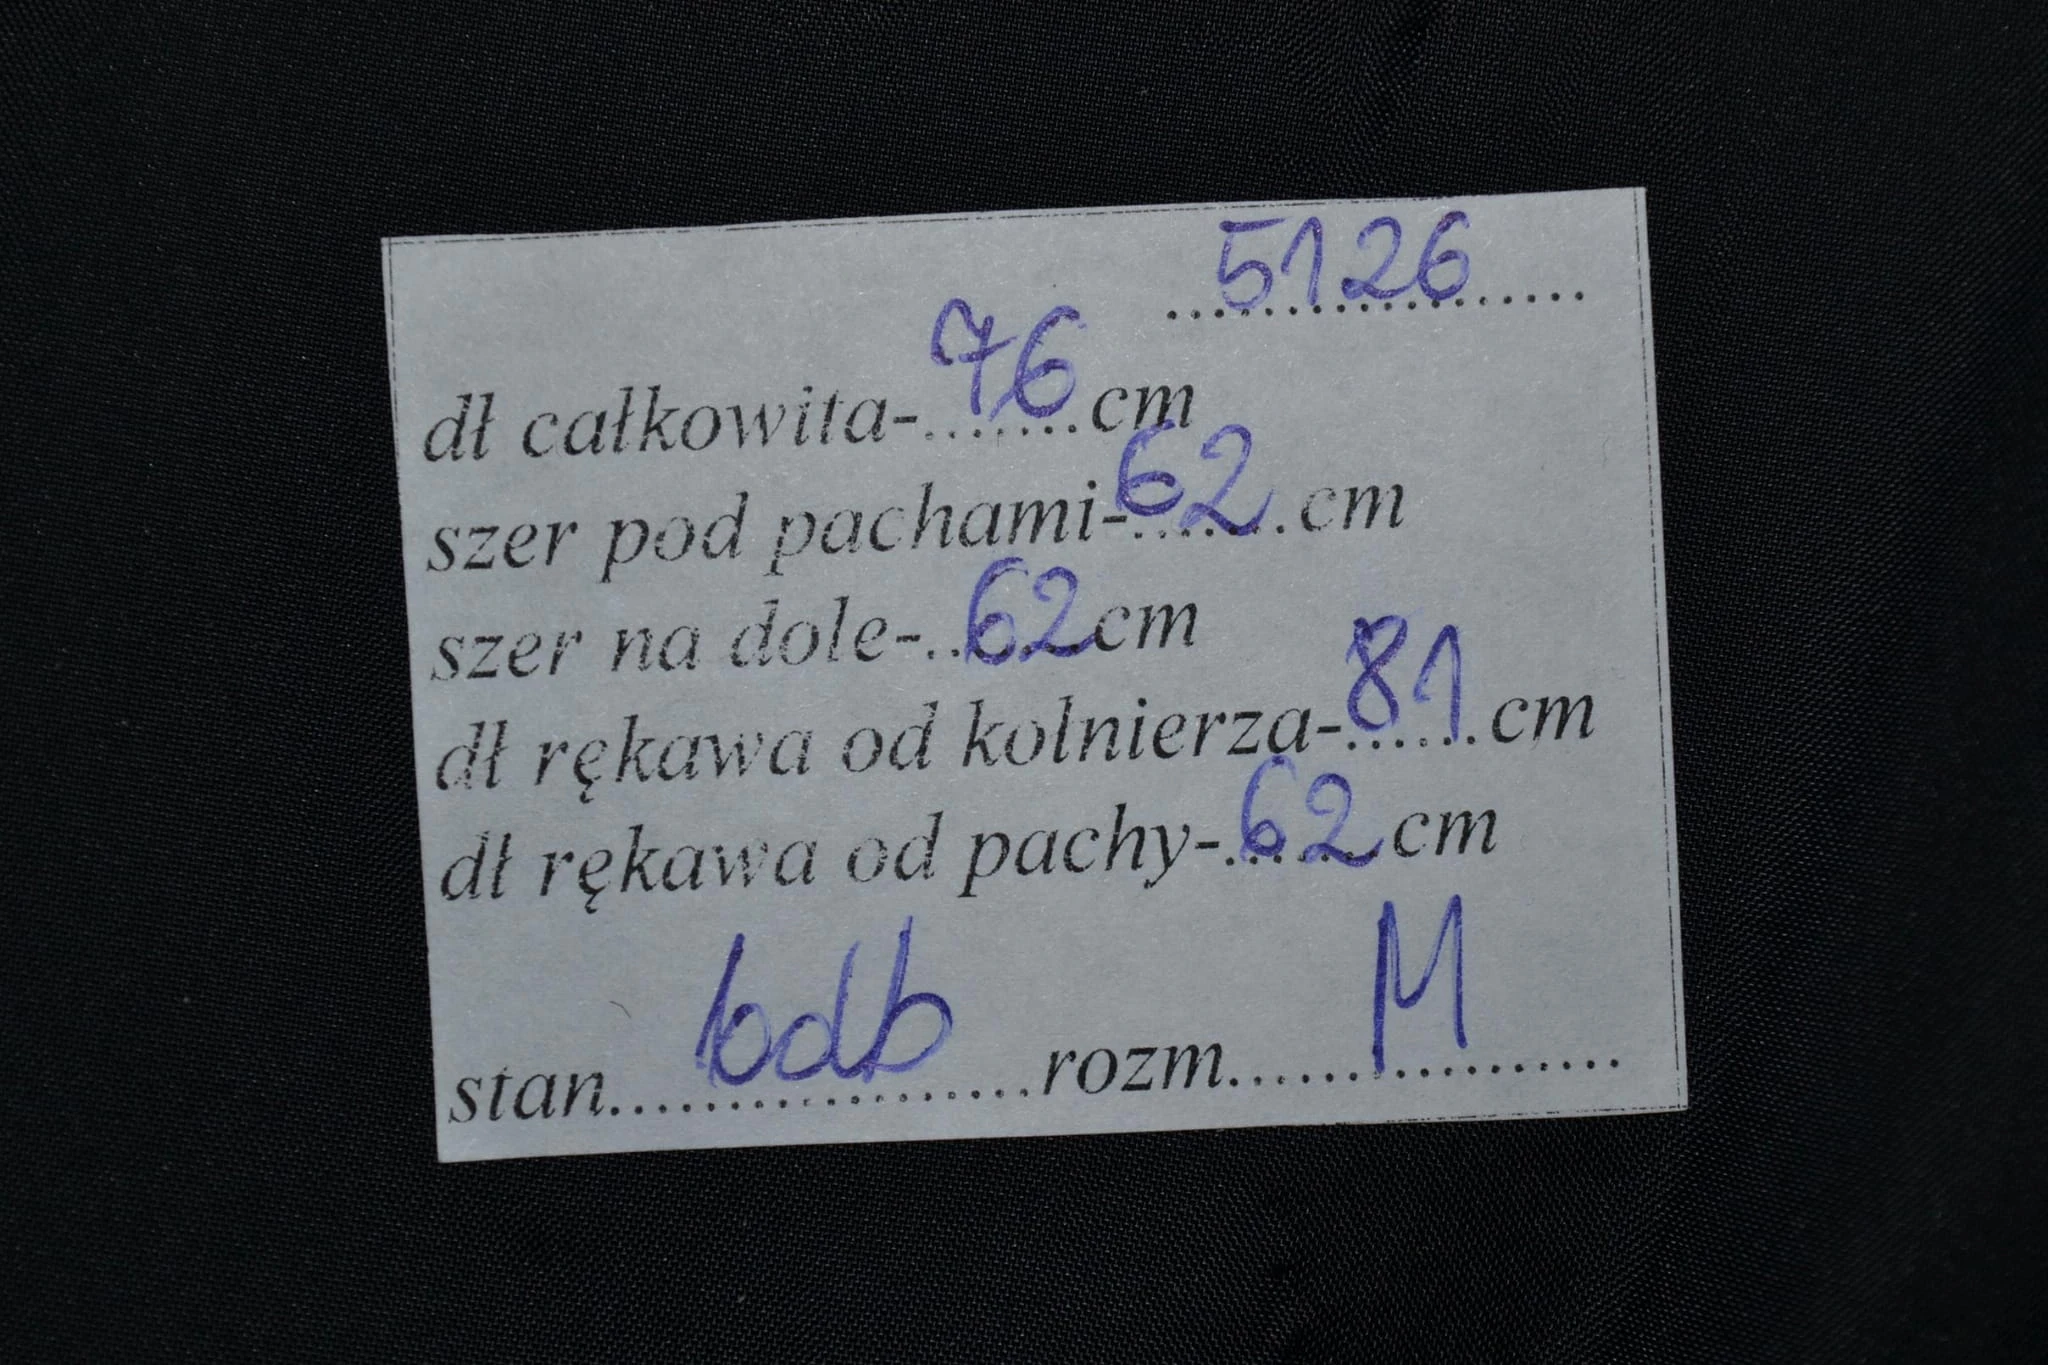 5126
dł całkowita-76cm
szer pod pachami-62cm
szer na dole-62cm
dł rękawa od kolnierza-81cm
dł rękawa od pachy-62cm
stan bdb rozm M